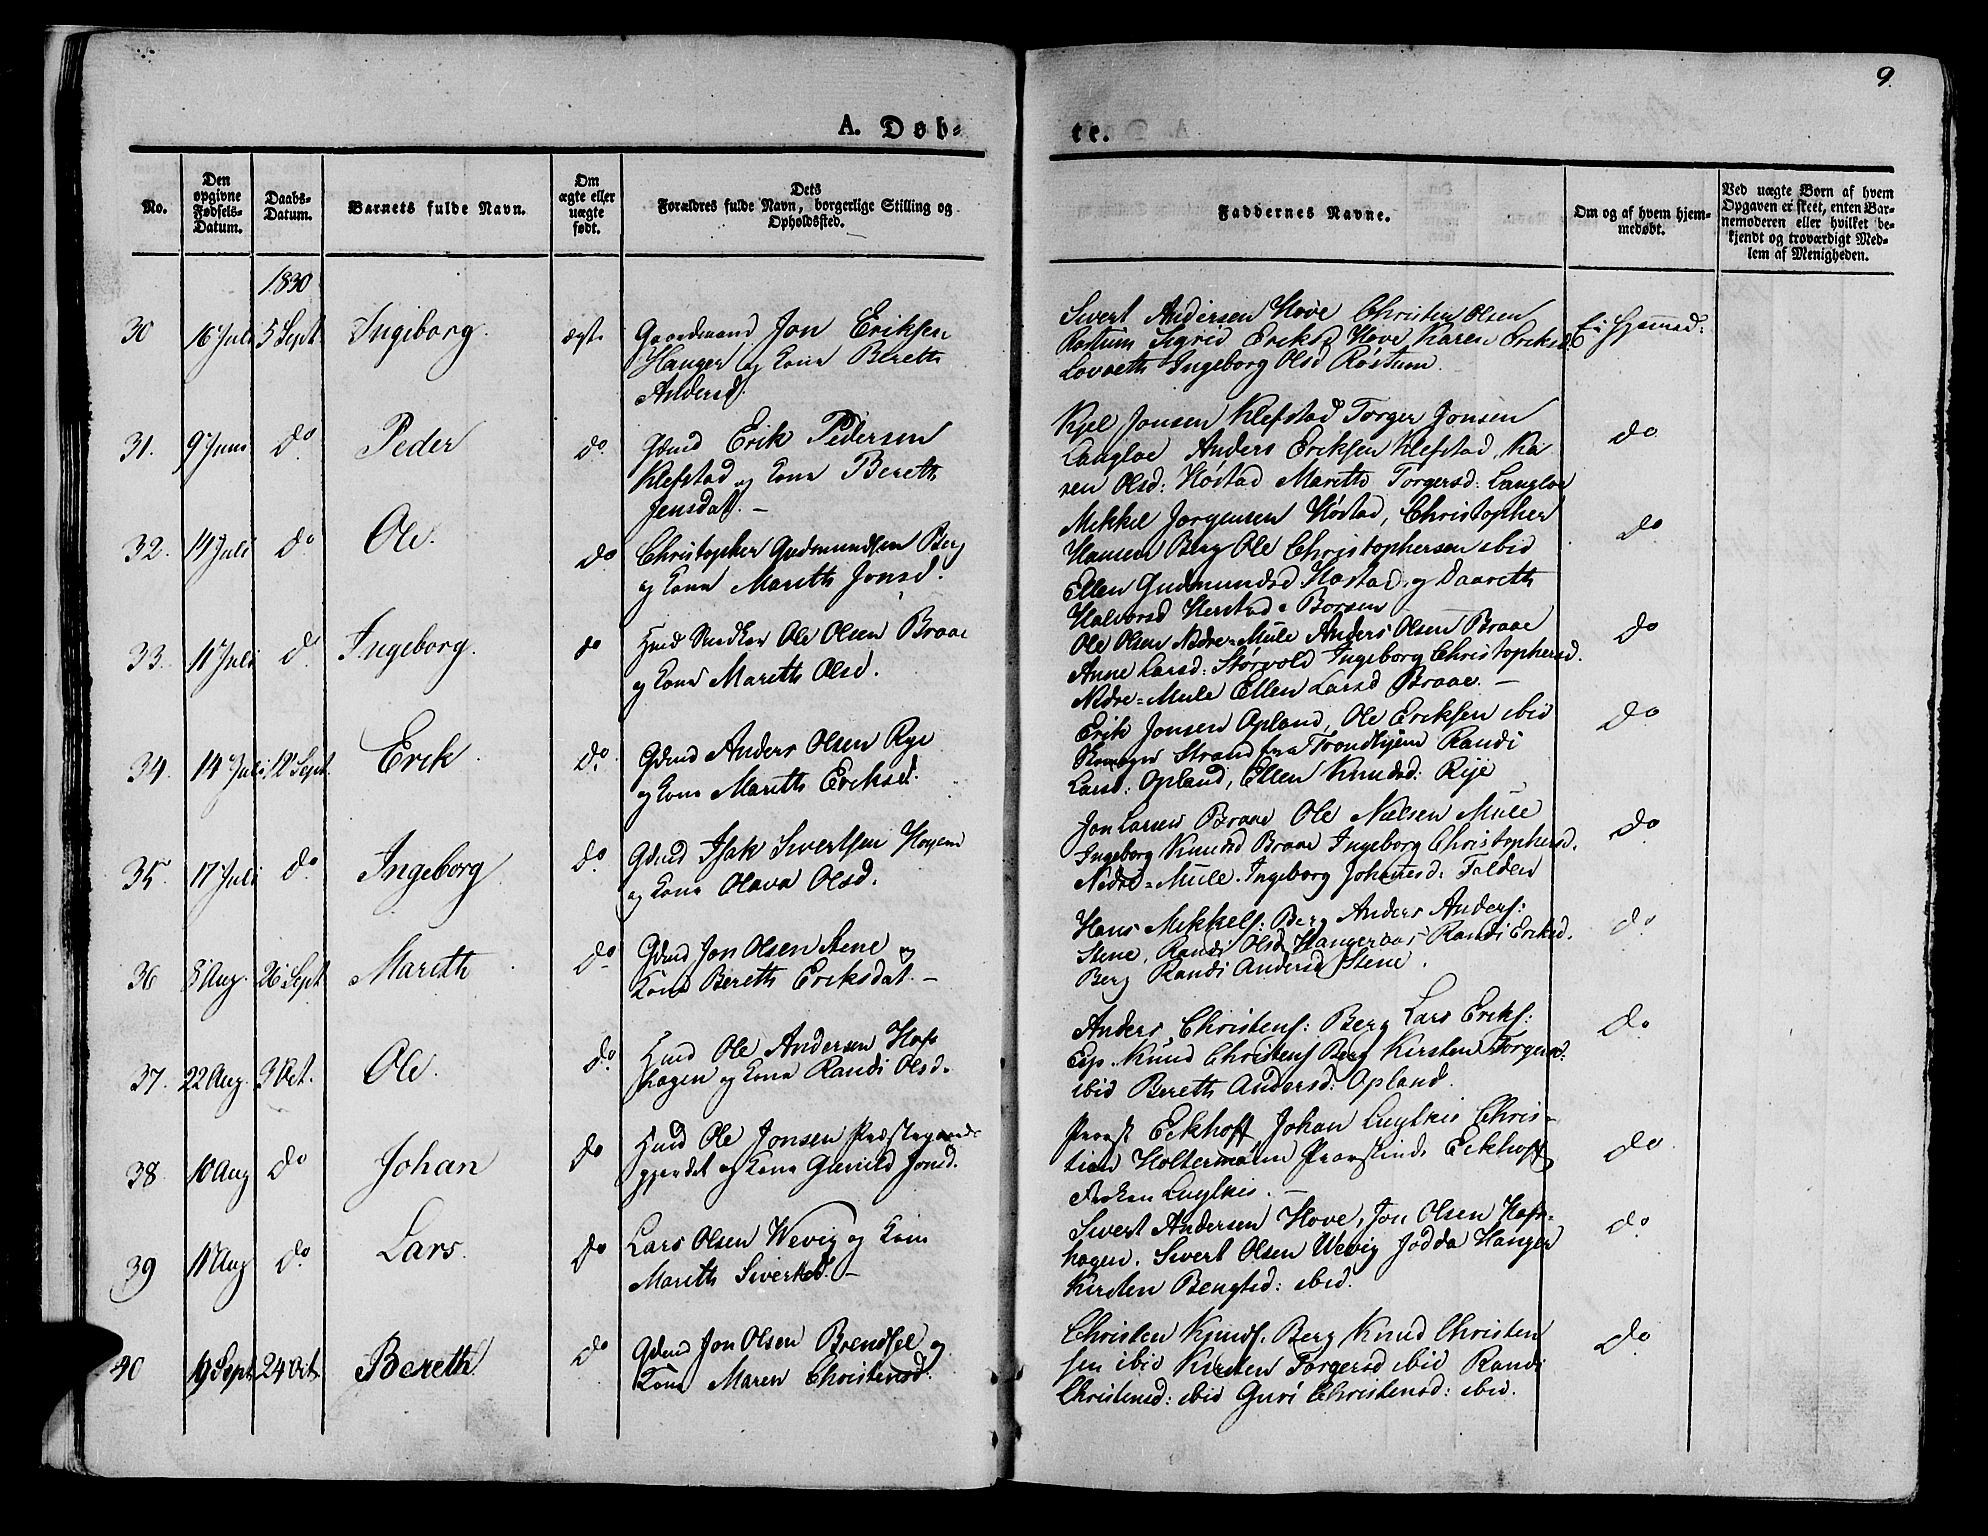 9.
A. Døb-
te.
No.
Den opgivne Fødsels-Datum.
Daabs-Datum.
Barnets fulde Navn.
Om ægte eller uægte født.
Dets Forældres fulde Navn, borgerlige Stilling og Opholdssted.
Faddernes Navne.
Om og af hvem hjemmedøbt.
Ved uægte Børn af hvem
Opgaven er skeet, enten Bar-
nemoderen eller hvilket be-
kjendt og troværdigt Med-
lem af Menigheden.
1830
30 16 Juli 5 Sept Ingeborg. ægte Gaardmand Jon Eriksen
Hanger og Kone Bereth
Andersd.
Sivert Andersen Hove Christen Olsen
Rostum Sigrid Eriksd Hove Karen Eriksd
Lovaeth Ingeborg Olsd Røstum.
Ei hjemmed:
31. 9 Juni do Peder do Gdmd Erik Pedersen
Klefstad og Kone Bereth
Jensdat. -
Kjel Jonsen Klefstad Torger Jonsen
Langloe Anders Eriksen Klefstad, Ka
ren Olsd: Høstad Mareth Torgersd: Langloe
do
32. 14 Juli do Ole. do Christopher Gudmundsen Berg
og Kone Mareth Jonsd.
Mikkel Jørgensen Høstad, Christopher
Hansen Berg Ole Christophersen ibid
Ellen Gudmundsd Høstad og Daareth
Halvorsd Herstad i Børsen
do
33. 11 Juli do Ingeborg. do Hmd Ole Olsen Braae
og Kone Mareth Olsd.
Ole Olsen Nedre-Mule Anders Olsen Braae
Anne Larsd: Størvold Ingeborg Christophersd.
Nedre-Mule Ellen Larsd Braae. -
do
34. 14 Juli 12 Sept. Erik. do Gdmd Anders Olsen Rye
og Kone Mareth Eriksd.
Erik Jonsen Opland, Ole Eriksen ibid
Strand fra Trondhjem Randi
Larsd: Opland, Ellen Knudsd: Rye
do
35. 17 Juli do Ingeborg do Gdmd Isak Sivertsen Hoyem
og Kone Olava Olsd.
Jon Larsen Braae Ole Nielsen Mule
Ingeborg Knudsd Braae Ingeborg Christophersd.
Nedre-Mule. Ingeborg Johansd: Folden
do
36 5 Aug. 26 Sept Mareth do Gdmd Jon Olsen Stene og
Kone Bereth Eriksdat. -
Hans Mikkels: Berg Anders Anders:
Stene, Randi Olsd Hangeraas Randi Eriksd.
Berg Randi Andersd Stene.
do
37. 22 Aug. 3 Oct. Ole. do Hmd Ole Andersen Hofs
hagen og Kone Randi Olsd.
Anders Christens: Berg Lars Eriks:
Esp. Knud Christens Berg Kirsten Torgersd.
ibid Bereth Andersd: Opland.
do
38. 10 Aug do Johan do Hmd Ole Jonsen Præstegaards
gjerdet og Kone Gunild Jonsd.
Provst Eckhoff, Johan Luytkis Chris-
tian Holtermann Provstinde Eckhoff
Luytkis. -
do
39 11 Aug do Lars. do Lars Olsen Wevig og Kone
Mareth Sivertsd. -
Sivert Andersen Hove, Jon Olsen Hofs-
hagen. Sivert Olsen Wevig Jodda Hanger
Kirsten Bengtsd: ibid.
do
40 19 Sept 24 Oct. Bereth do Gdmd Jon Olsen Brendsel og
Kone Maren Christensd.
Christen Knuds. Berg Knud Christen
sen ibid Kirsten Torgersd ibid Randi
Christensd: ibid Guri Christensd: ibid.
do